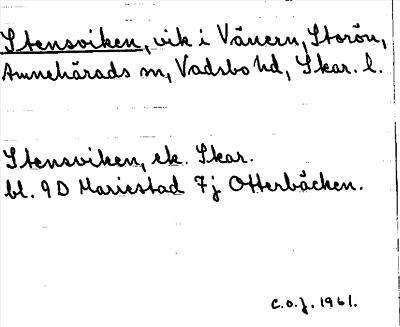 Stensviken, vik i Vänern, Storön,
Amnehärads sn, Vadsbo hd, Skar. l.
Stensviken, ek. Skar.
bl. 9D Mariestad 7j Otterbäcken.
C.O.J. 1961.